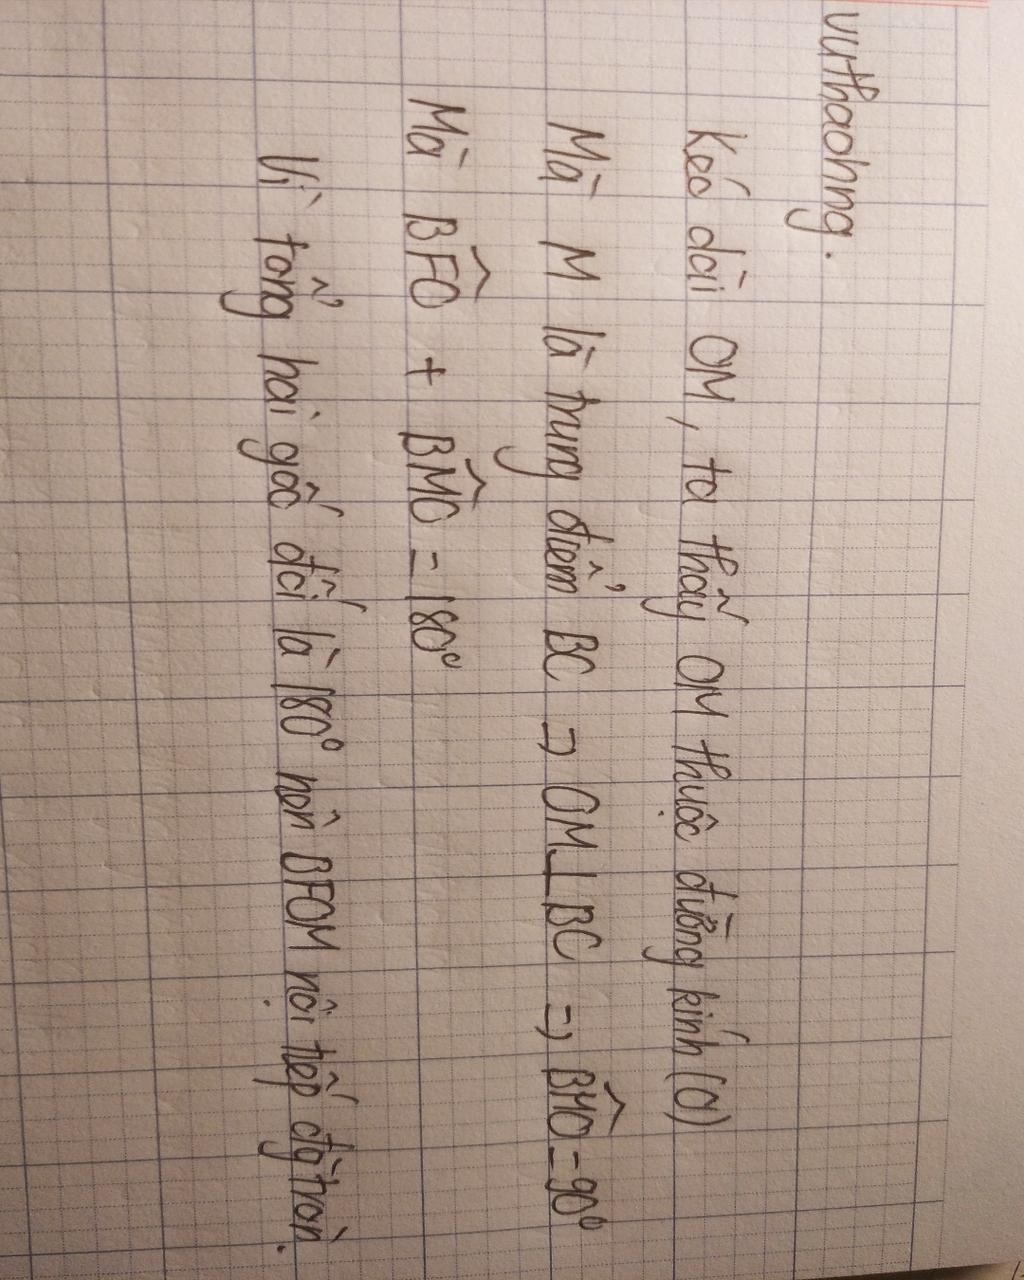 vuthaohng.
Kéo dài OM, ta thấy OM thuộc đường kính (O)
Mà M là trung điểm BC => OM⊥BC => BM̂O = 90°
Mà BF̂O + BM̂O = 180°
Vì tổng hai góc đối là 180° nên BFOM nội tiếp đg tròn.